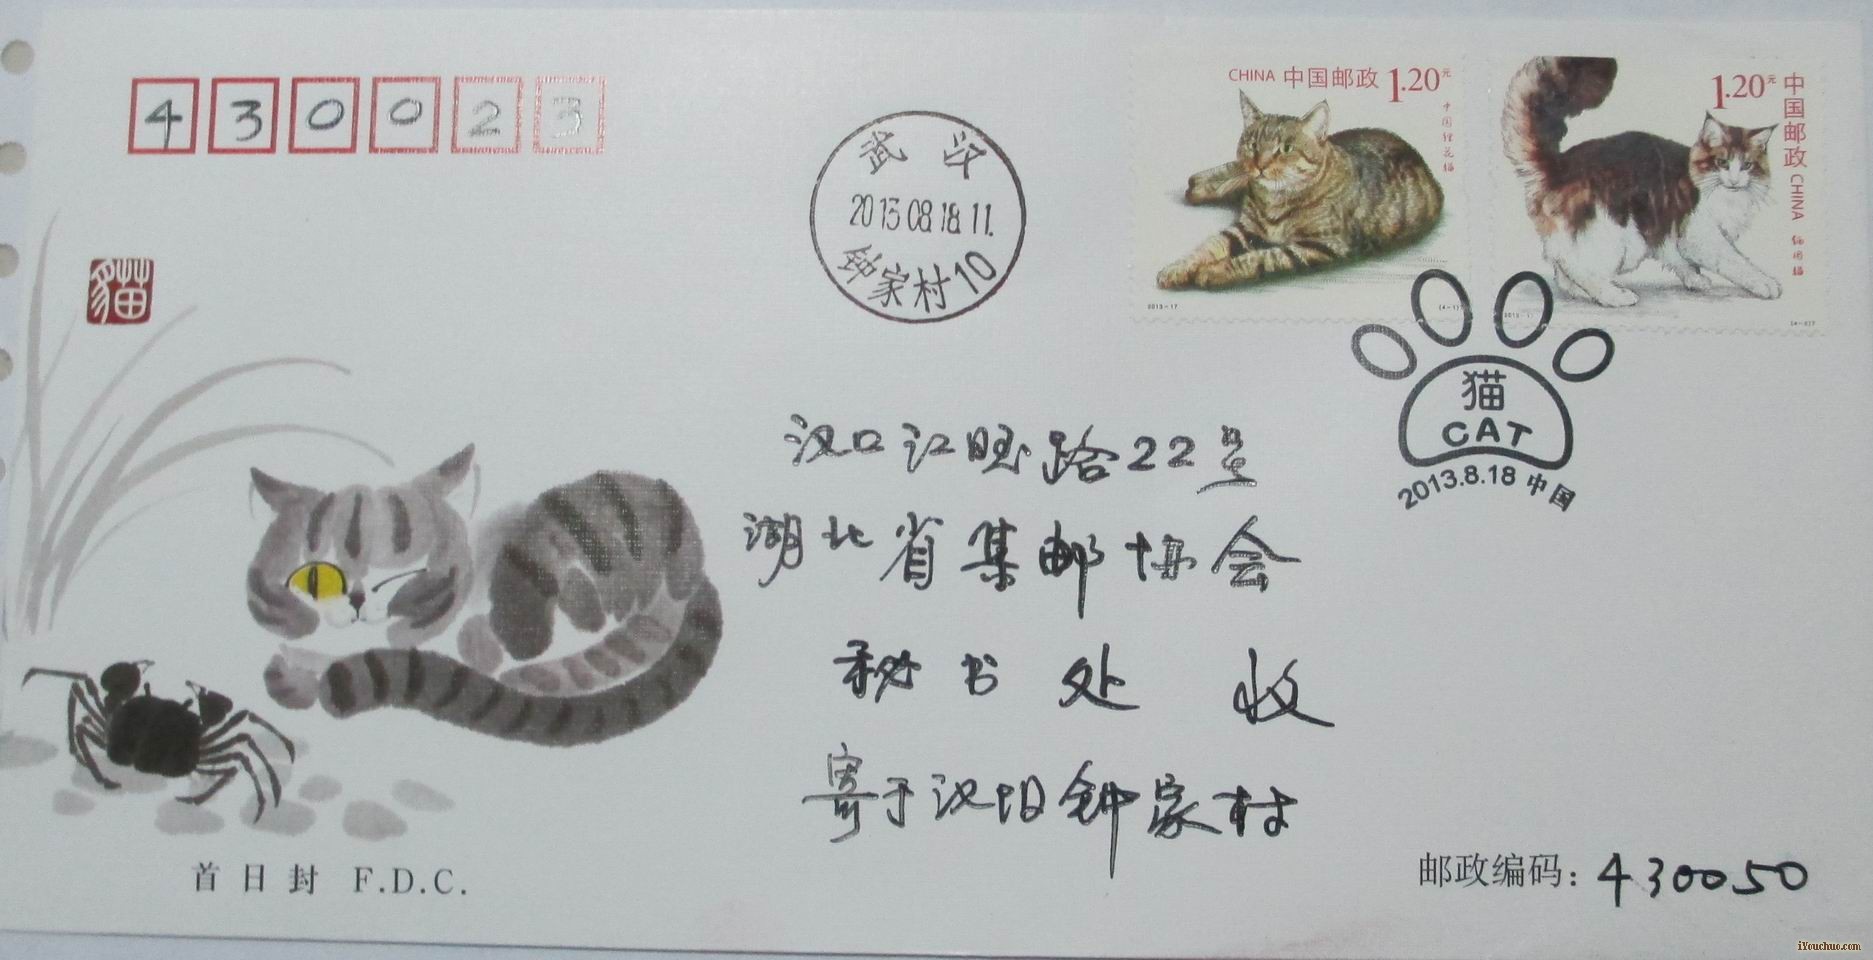 430023
武汉
2013.08.18.11.
钟家村10
CHINA 中国邮政 1.20元
中国狸花猫
2013-17
(4-1)
1.20元
中国邮政 CHINA
猫
猫
CAT
2013.8.18 中国
汉口江旺路22号
湖北省集邮协会
秘书处 收
寄于汉阳钟家村
首日封 F.D.C.
邮政编码：430050
iYouchuo.com